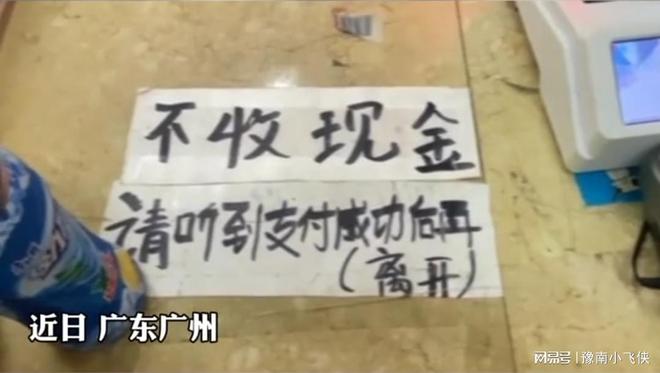 不收现金
请听到支付成功后再
(离开)
近日 广东广州
网易号 | 豫南小飞侠